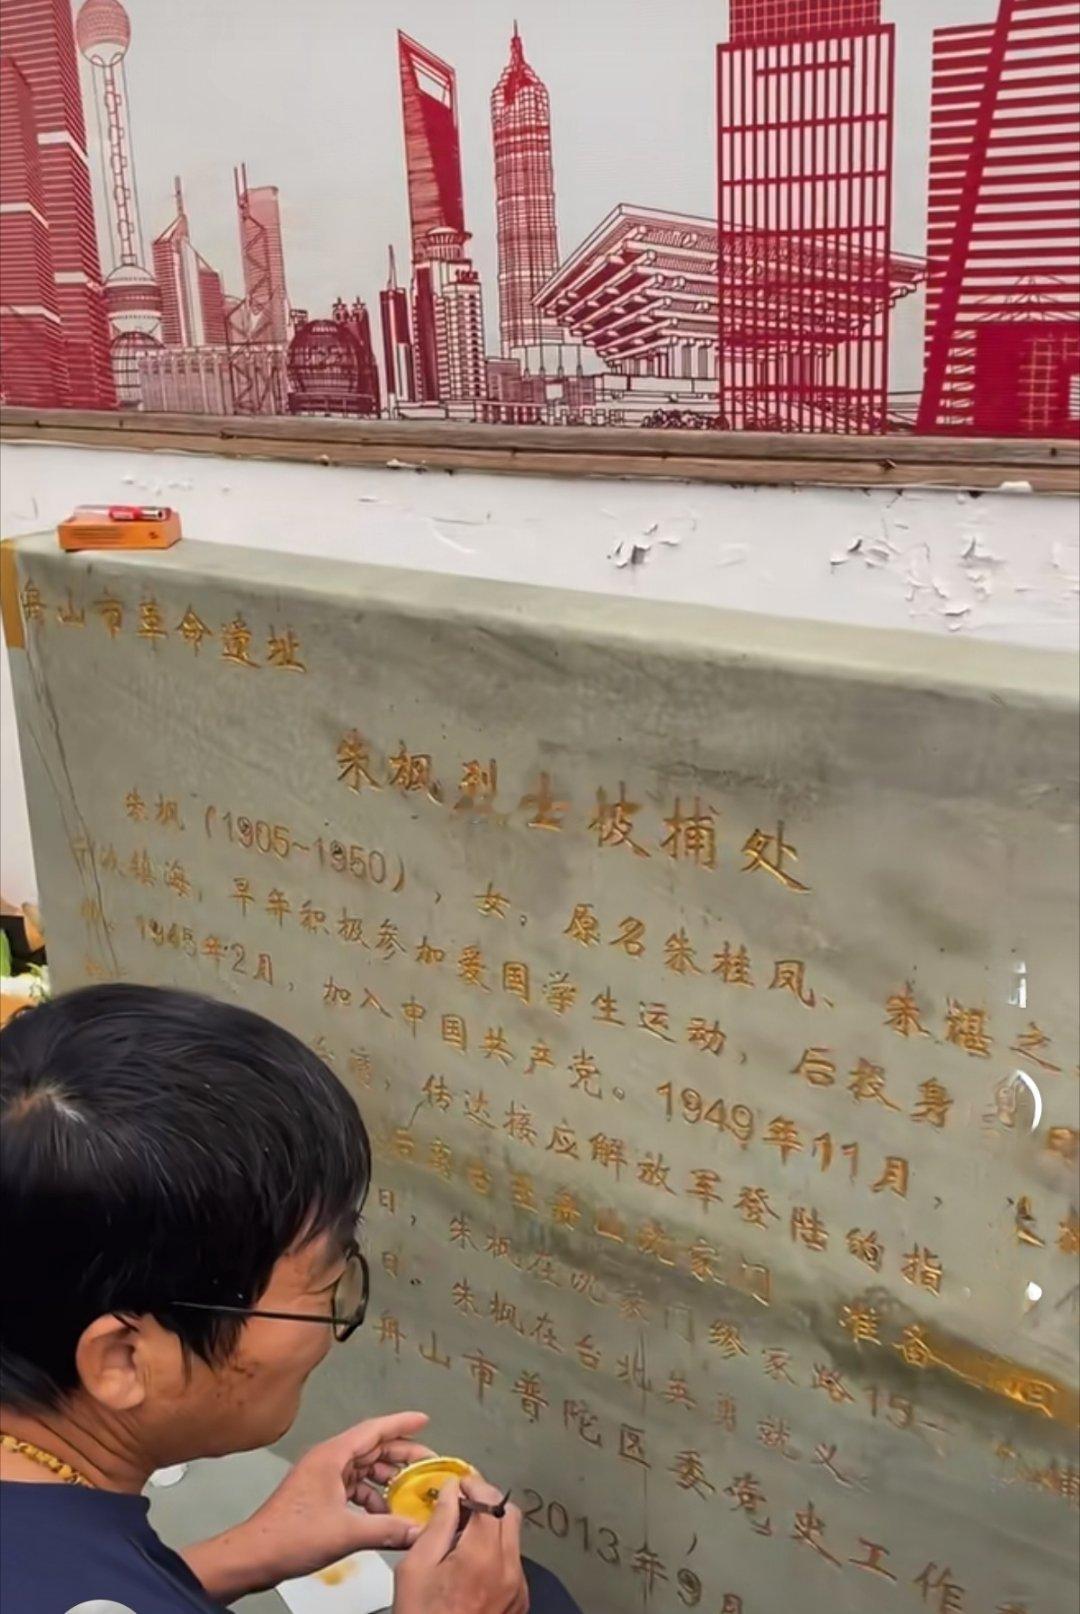 舟山市革命遗址
朱枫烈士被捕处
朱枫（1905~1950），女。原名朱桂凤、朱諶之
宁波镇海，早年积极参加爱国学生运动，后投身
1945年2月，加入中国共产党。1949年11月，
台湾，传达接应解放军登陆的指
后离台至舟山沈家门 准备回
日，朱枫在沈家门缪家路15
日。朱枫在台北英勇就义
舟山市普陀区委党史工作
2013年9月